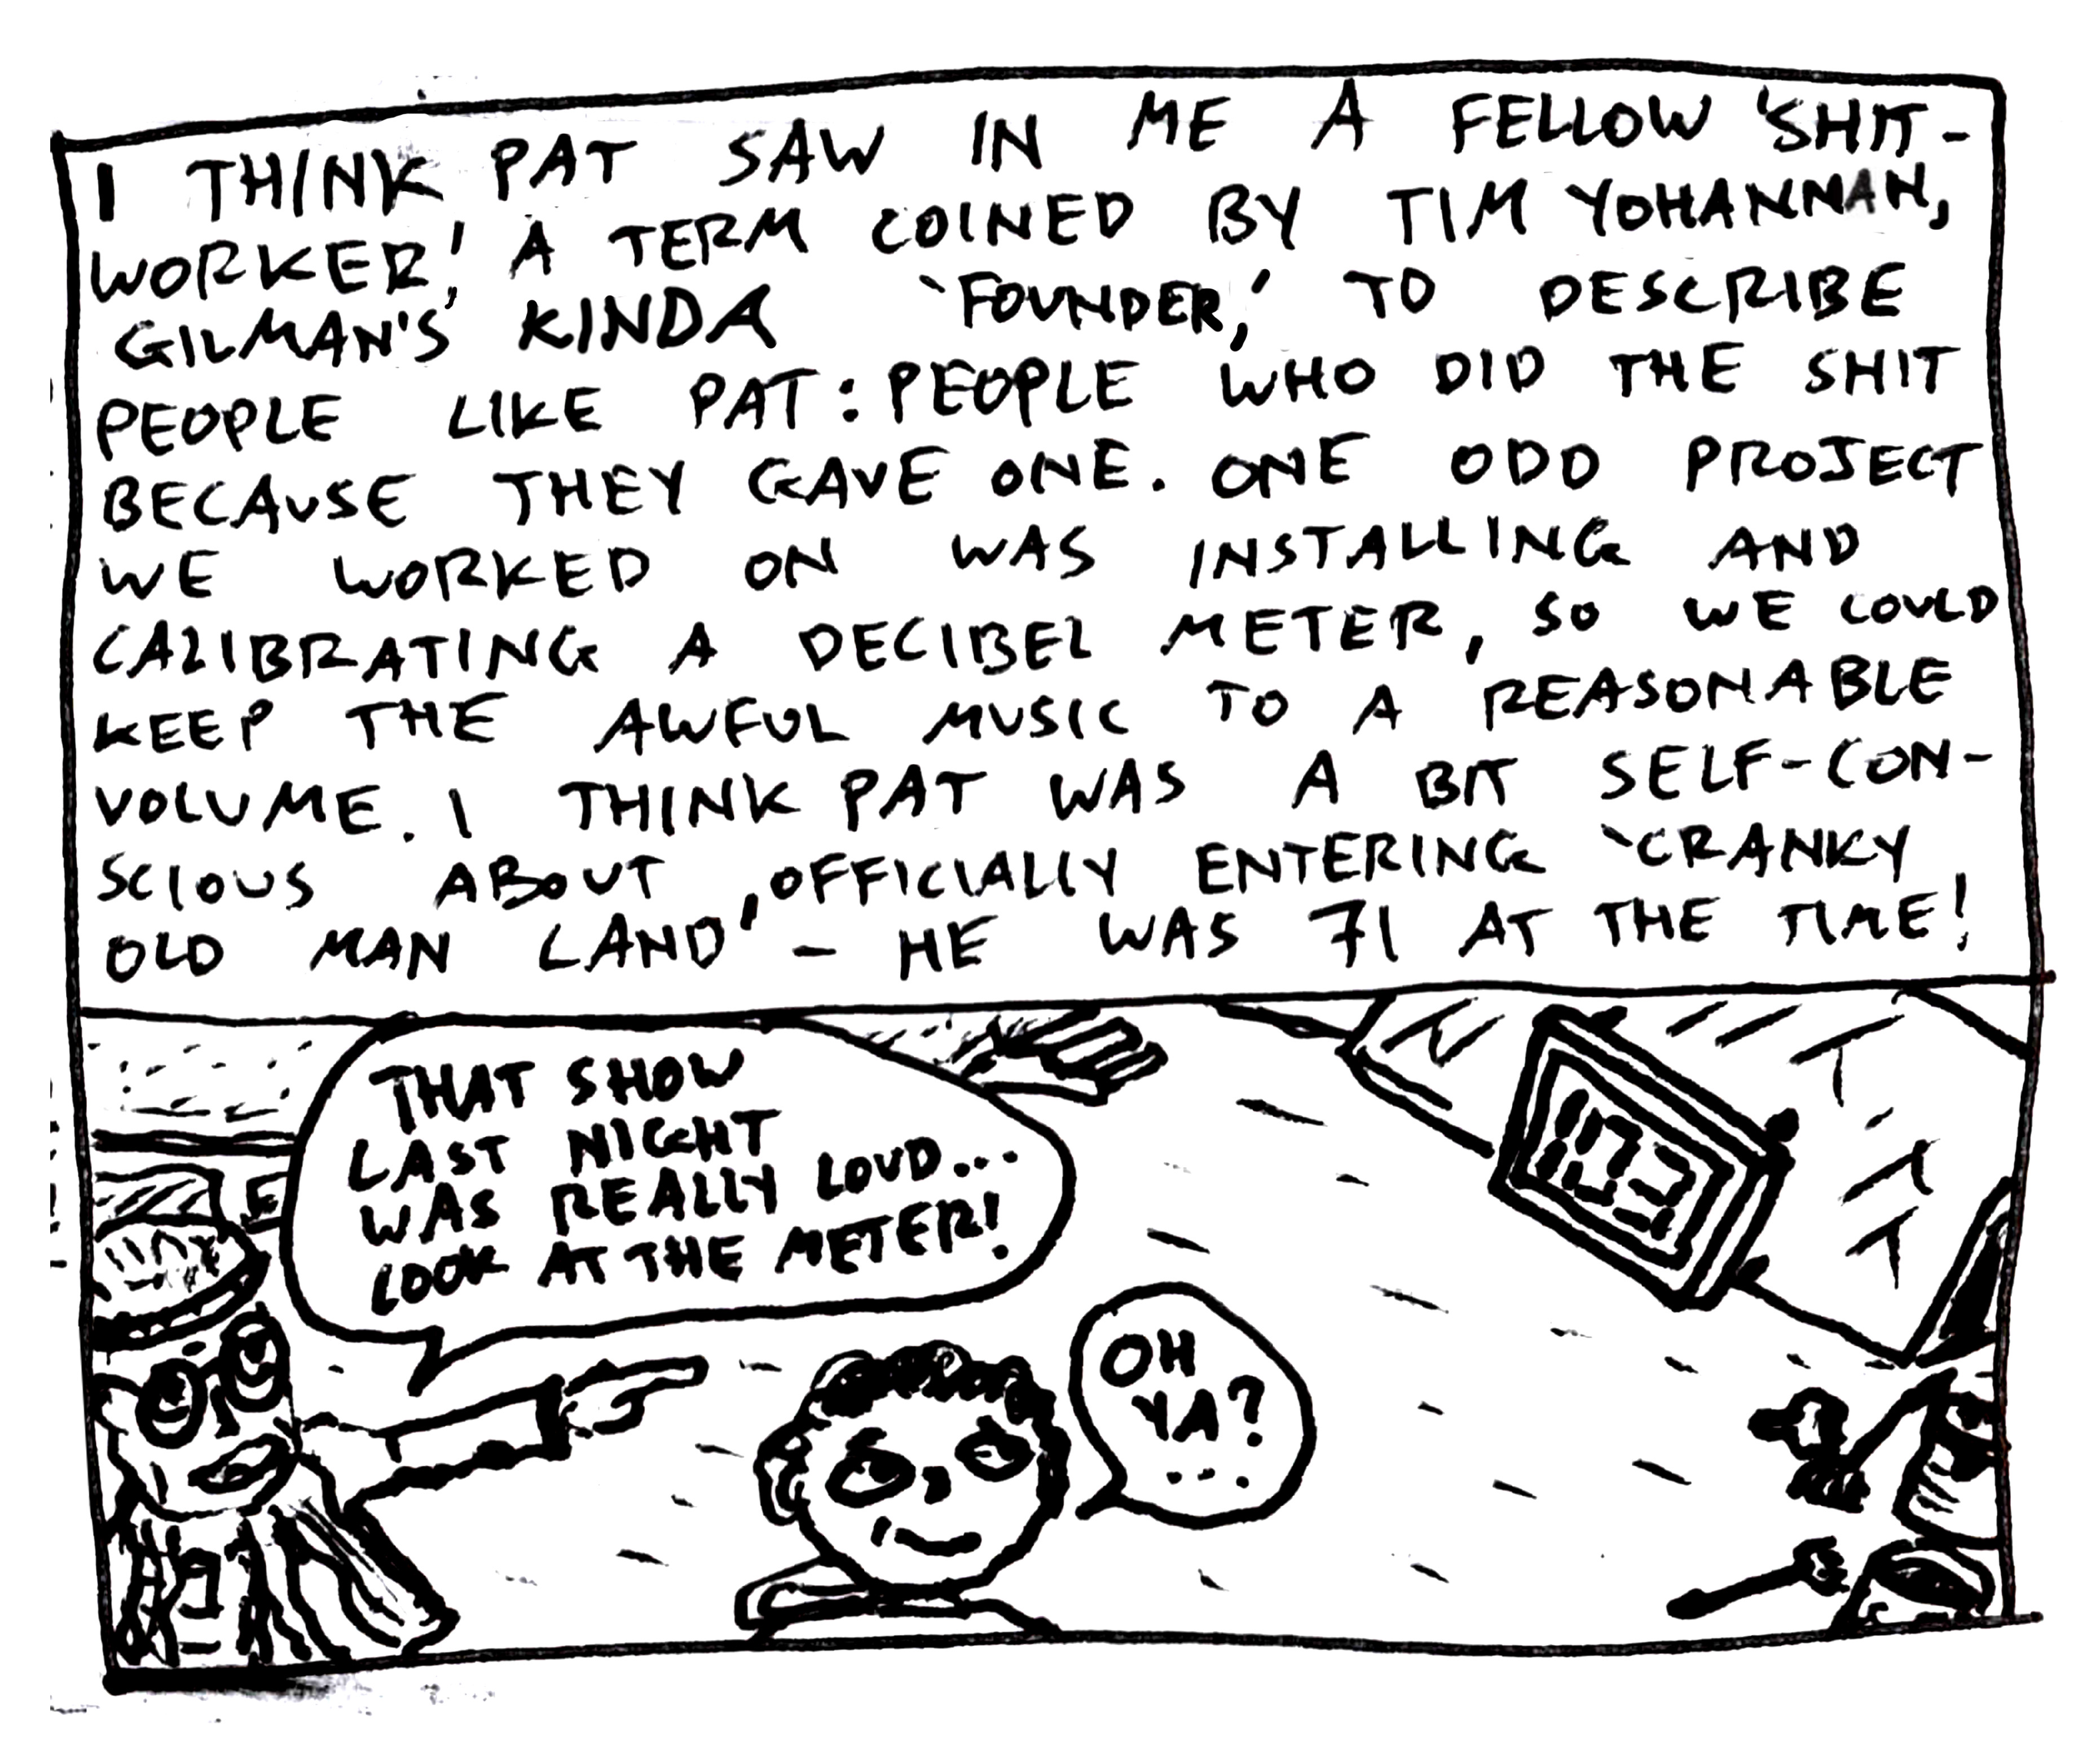 I THINK PAT SAW IN ME A FELLOW 'SHIT-
WORKER,' A TERM COINED BY TIM YOHANNAN,
GILMAN'S KINDA 'FOUNDER,' TO DESCRIBE
PEOPLE LIKE PAT: PEOPLE WHO DID THE SHIT
BECAUSE THEY GAVE ONE. ONE ODD PROJECT
WE WORKED ON WAS INSTALLING AND
CALIBRATING A DECIBEL METER, SO WE COULD
KEEP THE AWFUL MUSIC TO A REASONABLE
VOLUME. I THINK PAT WAS A BIT SELF-CON-
SCIOUS ABOUT OFFICIALLY ENTERING 'CRANKY
OLD MAN LAND' - HE WAS 71 AT THE TIME!
THAT SHOW
LAST NIGHT
WAS REALLY LOUD...
LOOK AT THE METER!
OH
YA?
...